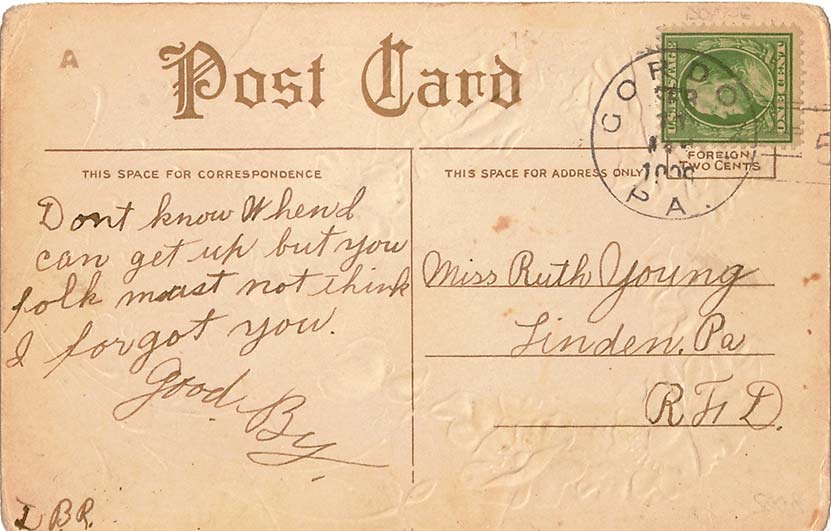 A
Post Card
U.S. POSTAGE
ONE CENT
PA.
FOREIGN
TWO CENTS
THIS SPACE FOR CORRESPONDENCE
THIS SPACE FOR ADDRESS ONLY
Dont know When I
can get up but you
folk must not think
I forgot you.
Good By
Miss Ruth Young
Linden, Pa
R F D.